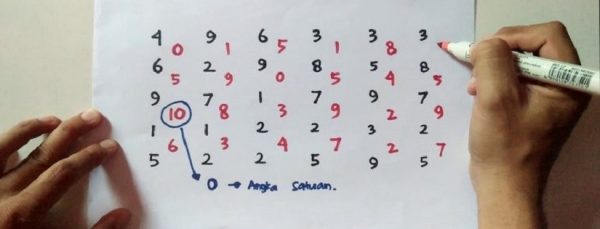 4 9 6 3 3 3
0 1 5 1 8
6 2 9 8 5 8
5 9 0 5 4 5
9 7 1 7 9 7
10 8 3 9 2 9
1 1 2 2 3 2
6 3 4 7 2 7
5 2 2 5 9 5
0 → Angka Satuan.